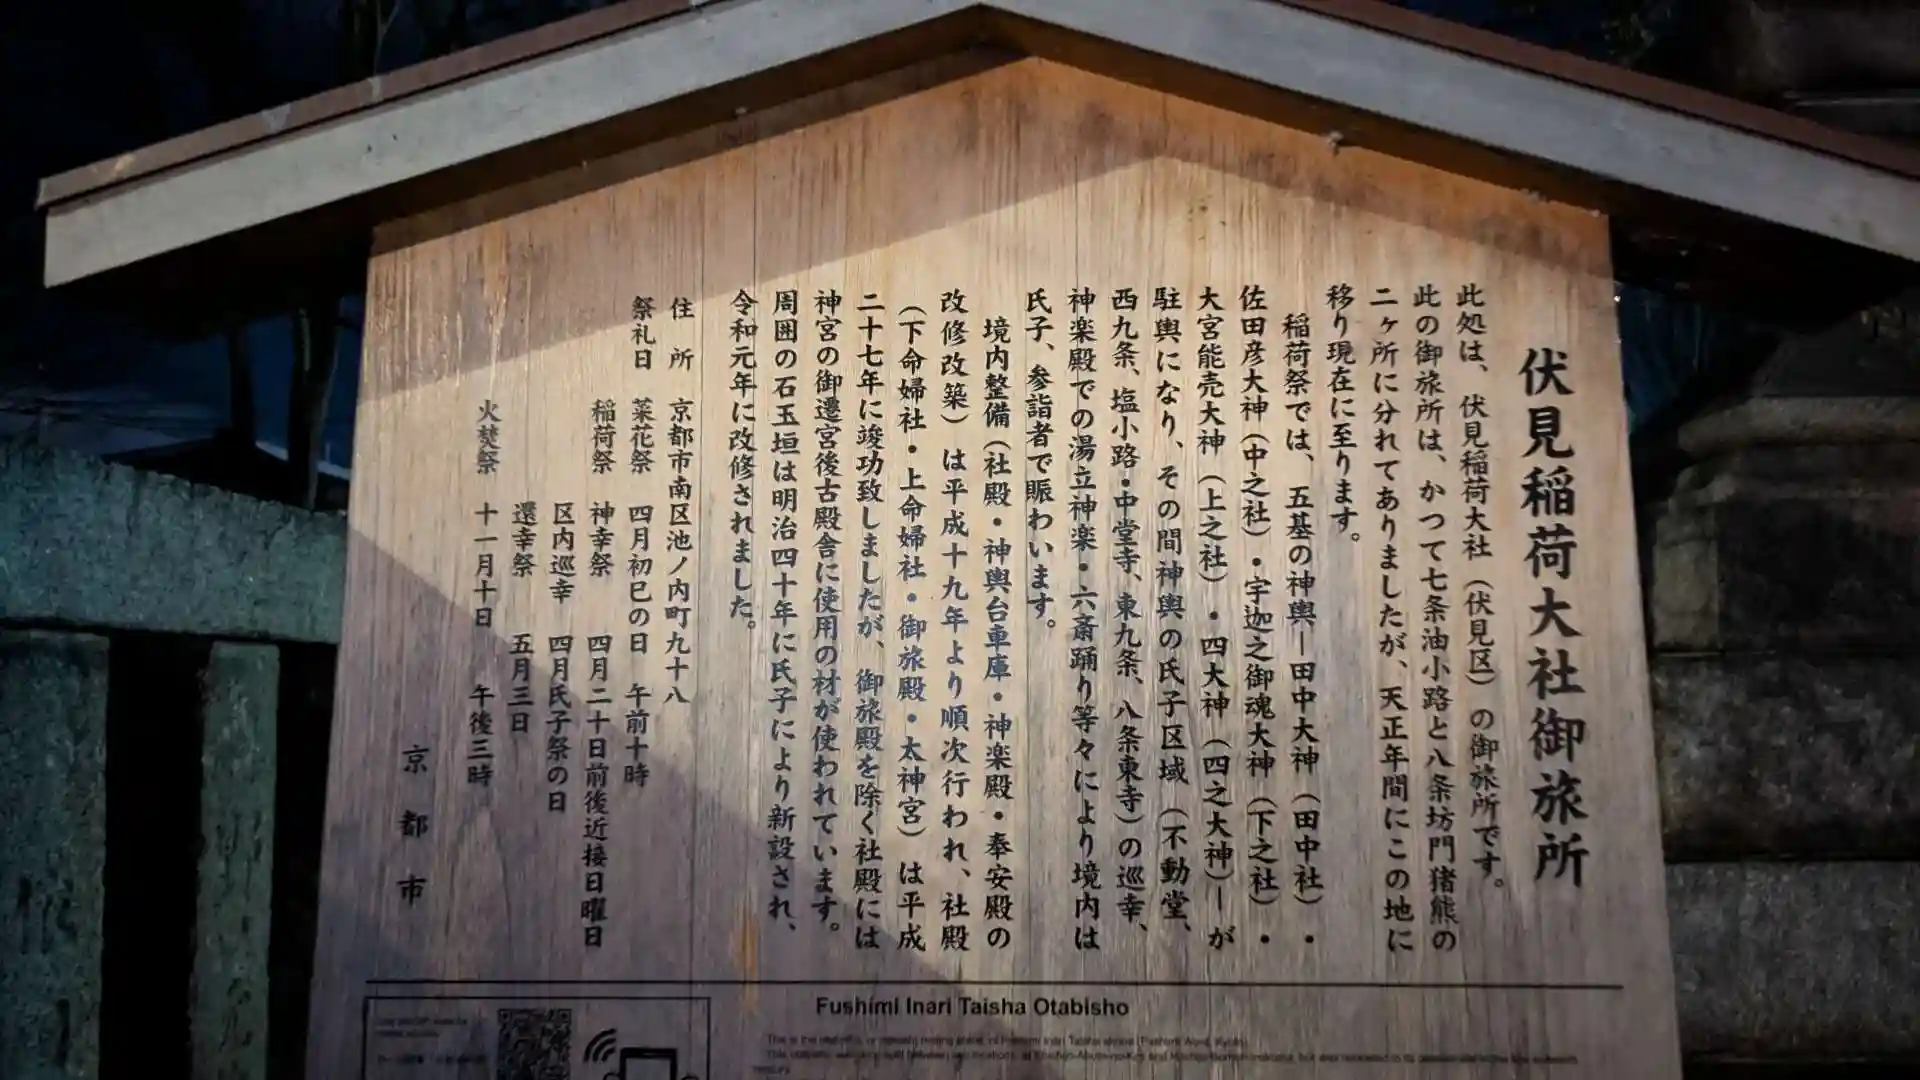 伏見稲荷大社御旅所
此処は、伏見稲荷大社(伏見区)の御旅所です。
此の御旅所は、かつて七条油小路と八条坊門猪熊の
二ヶ所に分れてありましたが、天正年間にこの地に
移り現在に至ります。
稲荷祭では、五基の神輿―田中大神(田中社)・
佐田彦大神(中之社)・宇迦之御魂大神(下之社)・
大宮能売大神(上之社)・四大神(四之大神)―が
駐輿になり、その間神輿の氏子区域(不動堂、
西九条、塩小路・中堂寺、東九条、八条東寺)の巡幸、
神楽殿での湯立神楽・六斎踊り等々により境内は
氏子、参詣者で賑わいます。
境内整備(社殿・神輿台車庫・神楽殿・奉安殿の
改修改築)は平成十九年より順次行われ、社殿
(下命婦社・上命婦社・御旅殿・太神宮)は平成
二十七年に竣功致しましたが、御旅殿を除く社殿には
神宮の御遷宮後古殿舎に使用の材が使われています。
周囲の石玉垣は明治四十年に氏子により新設され、
令和元年に改修されました。
住所 京都市南区池ノ内町九十八
祭礼日 菜花祭 四月初巳の日 午前十時
稲荷祭 神幸祭 四月二十日前後近接日曜日
区内巡幸 四月氏子祭の日
還幸祭 五月三日
火焚祭 十一月十日 午後三時
京都市
Fushimi Inari Taisha Otabisho